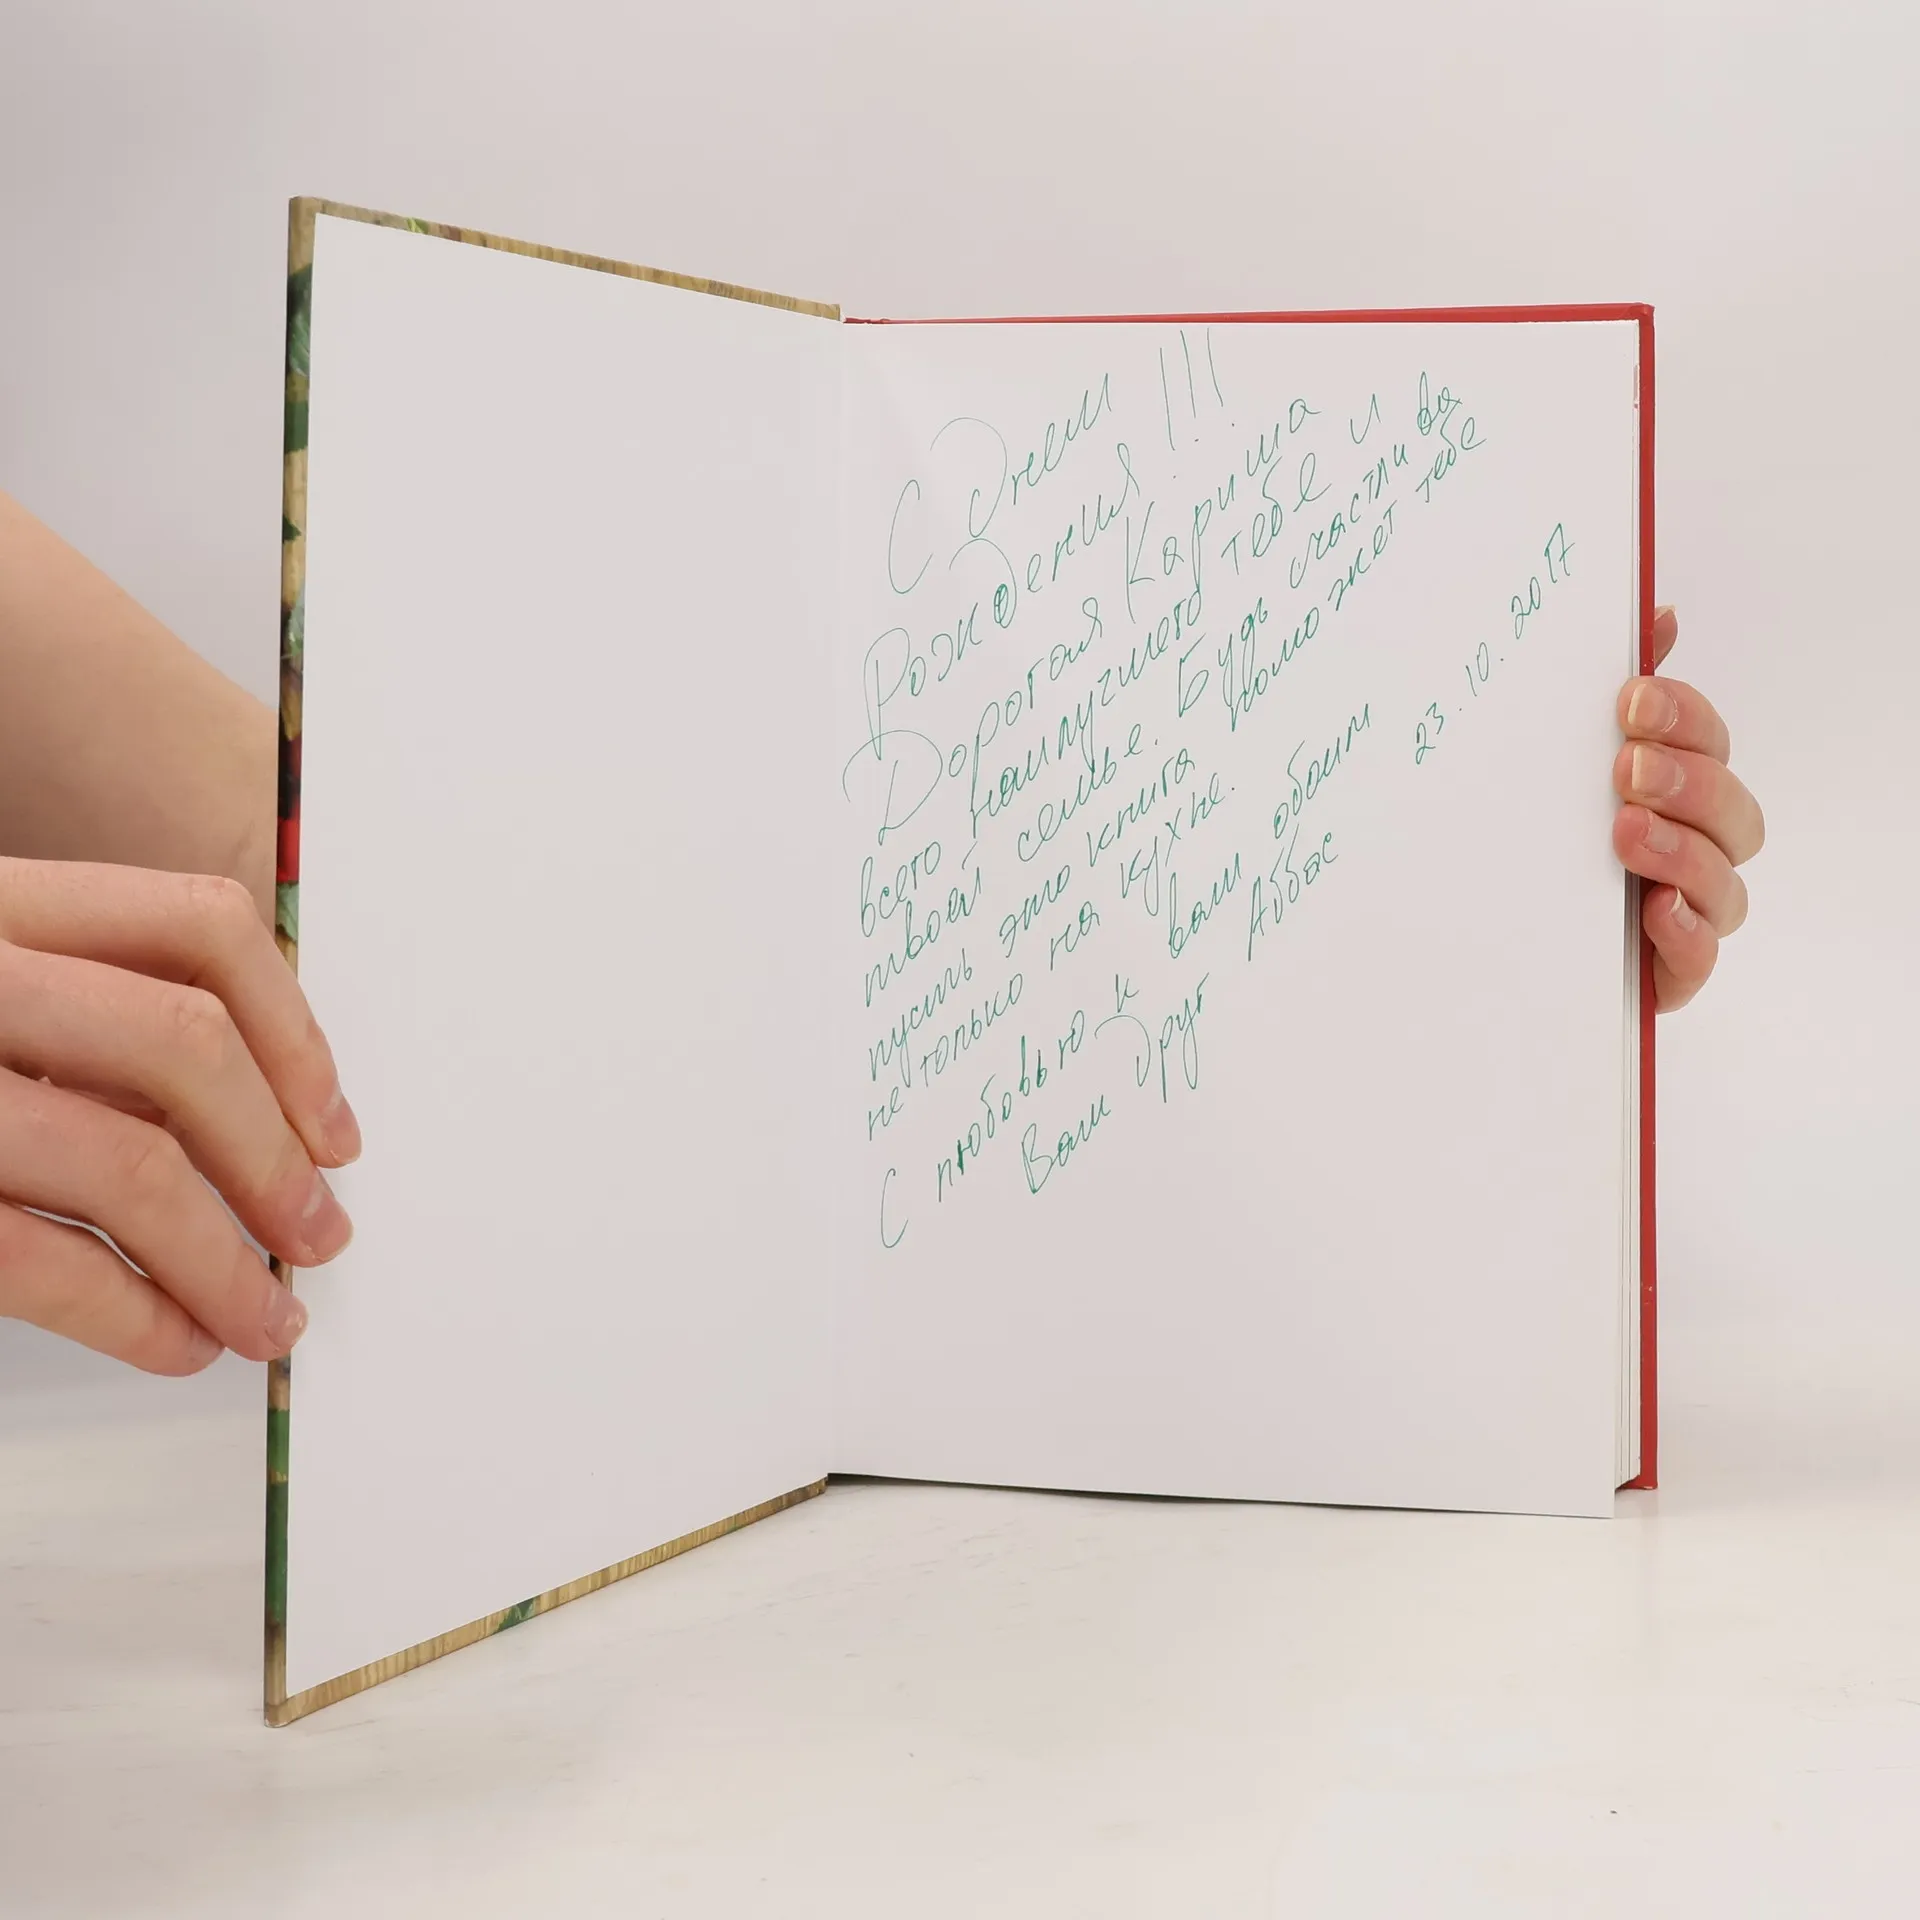 С Днем
Рождения !!!
Дорогая Карина
всего наилучшего тебе и
твоей семье. Будь счастлива
пусть это книга поможет тебе
не только на кухне.
С любовью к вам обоим
Ваш Друг Аббас
23.10.2017